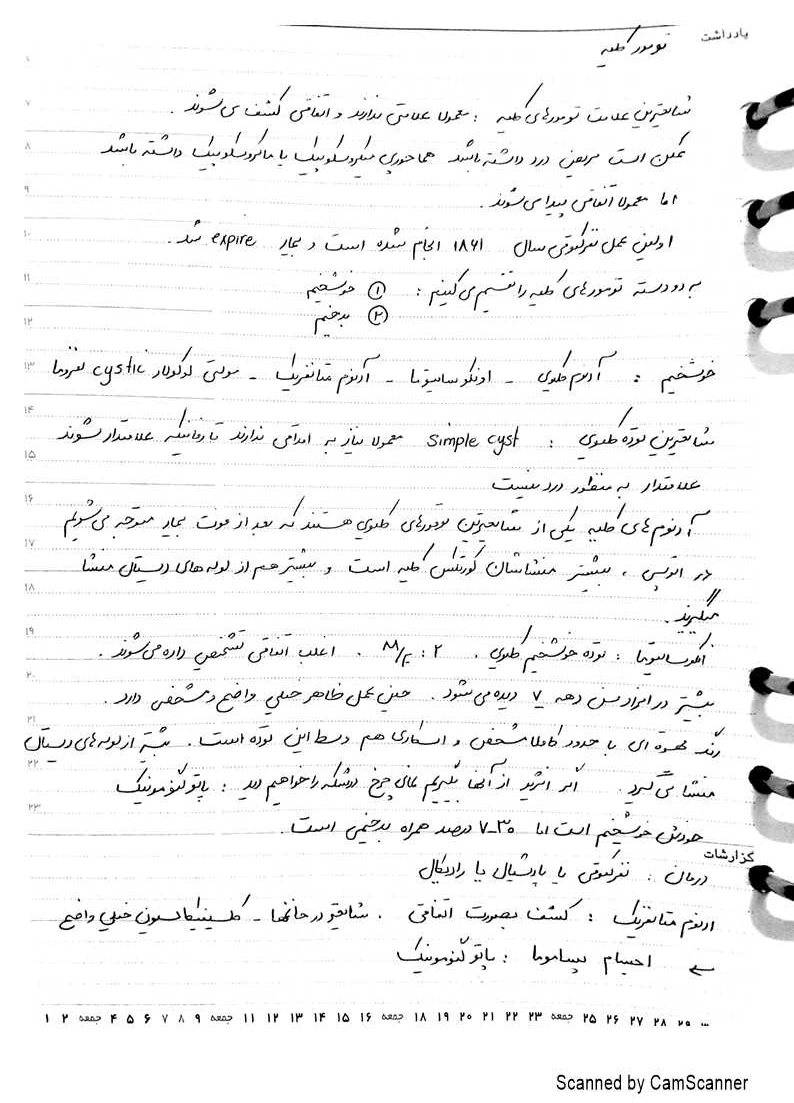 یادداشت
تومور کلیه
شایعترین علامت تومورهای کلیه : معمولا علامتی ندارند و اتفاقی کشف می شوند .
ممکن است مریض درد داشته باشد هماچوری میکروسکوپیک یا ماکروسکوپیک داشته باشد
اما معمولا اتفاقی پیدا می شوند .
اولین عمل نفرکتومی سال ۱۸۶۱ انجام شده است و بیمار expire شد .
به دو دسته تومورهای کلیه را تقسیم می کنیم : ① خوشخیم
② بدخیم
خوشخیم : آدنوم کلیوی - اونکوسایتوما - آدنوم متانفریک - مولتی لوکولار cystic نفروما
شایعترین توده کلیوی : Simple cyst معمولا نیاز به اقدامی ندارند تا زمانیکه علامتدار شوند
علامتدار به منظور درد نیست
آدنوم های کلیه یکی از شایعترین تومورهای کلیوی هستند که بعد از فوت بیمار متوجه می شویم
در اتوپسی ، بیشتر منشاشان کورتکس کلیه است و بیشتر هم از لوله های دیستال منشا
میگیرند .
انکوسایتوما : توده خوشخیم کلیوی . ۲ : ۱ M/F . اغلب اتفاقی تشخیص داده می شوند .
بیشتر در افراد مسن دهه ۷ دیده می شود . حین عمل ظاهر خیلی واضح و مشخصی دارد .
رنگ قهوه ای با حدود کاملا مشخص و اسکاری هم وسط این توده است . بیشتر از لوله های دیستال
منشا می گیرد . اگر انژیو از آنها بگیریم نمای چرخ درشکه را خواهیم دید : پاتوگنومونیک
خودش خوشخیم است اما ۷-۳۰ درصد همراه بدخیمی است .
گزارشات
درمان : نفرکتومی یا پارشیال یا رادیکال
ادنوم متانفریک : کشف بصورت اتفاقی . شایعتر در خانمها - کلسیفیکاسیون خیلی واضح
← اجسام پساموما : پاتوگنومونیک
۱ ۲ جمعه ۴ ۵ ۶ ۷ ۸ ۹ جمعه ۱۱ ۱۲ ۱۳ ۱۴ ۱۵ ۱۶ جمعه ۱۸ ۱۹ ۲۰ ۲۱ ۲۲ ۲۳ جمعه ۲۵ ۲۶ ۲۷ ۲۸ ۲۹ ۳۰
Scanned by CamScanner